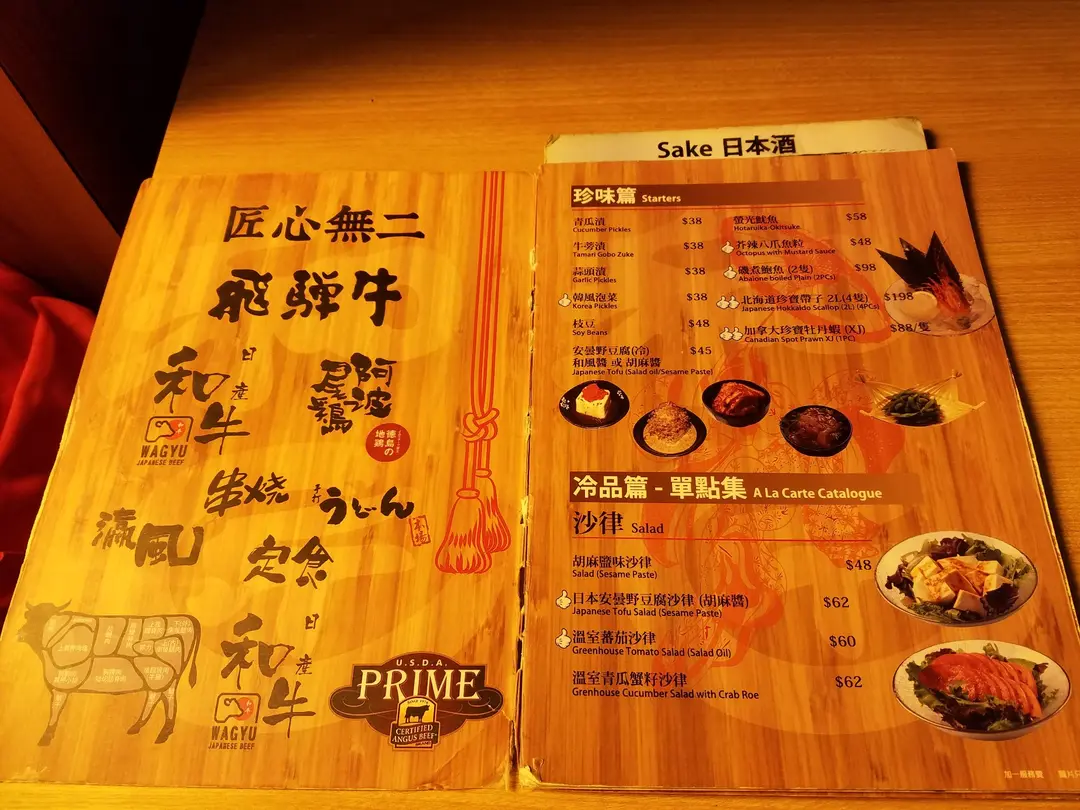 Sake 日本酒
匠心無二
飛騨牛
日産
和牛
WAGYU
JAPANESE BEEF
阿波
尾鶏
徳島の
地鶏
串焼
手打
うどん
本場
瀛風
定食
日産
和牛
WAGYU
JAPANESE BEEF
U.S.D.A.
PRIME
CERTIFIED
ANGUS BEEF
珍味篇 Starters
青瓜漬 $38
Cucumber Pickles
牛蒡漬 $38
Tamari Gobo Zuke
蒜頭漬 $38
Garlic Pickles
韓風泡菜 $38
Korea Pickles
枝豆 $48
Soy Beans
安曇野豆腐(冷) $45
和風醬 或 胡麻醬
Japanese Tofu (Salad oil/Sesame Paste)
螢光魷魚 $58
Hotaruika-Okitsuke
芥辣八爪魚粒 $48
Octopus with Mustard Sauce
磯煮鮑魚 (2隻) $98
Abalone boiled Plain (2PCs)
北海道珍寶帶子 2L(4隻) $198
Japanese Hokkaido Scallop (2L) (4PCs)
加拿大珍寶牡丹蝦 (XJ) $88/隻
Canadian Spot Prawn XJ (1PC)
冷品篇 - 單點集 A La Carte Catalogue
沙律 Salad
胡麻鹽味沙律 $48
Salad (Sesame Paste)
日本安曇野豆腐沙律 (胡麻醬) $62
Japanese Tofu Salad (Sesame Paste)
溫室蕃茄沙律 $60
Greenhouse Tomato Salad (Salad Oil)
溫室青瓜蟹籽沙律 $62
Grenhouse Cucumber Salad with Crab Roe
加一服務費